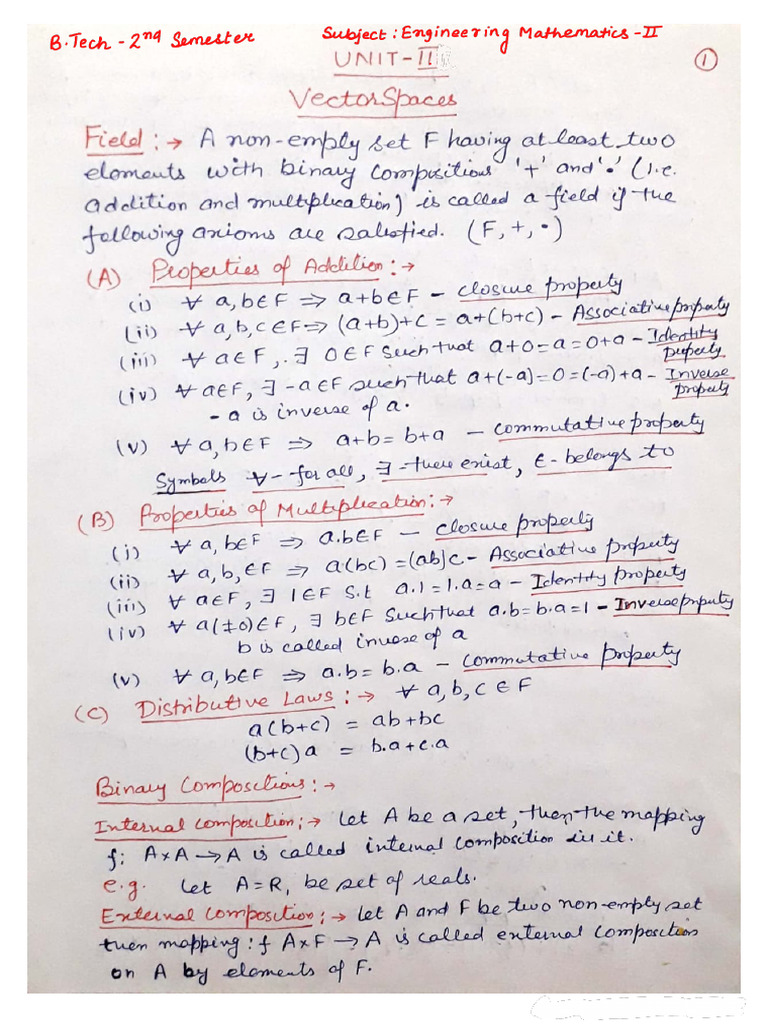 B.Tech - 2nd Semester
Subject : Engineering Mathematics - II
UNIT-II
1
Vector Spaces
Field :→ A non-empty set F having at least two
elements with binary compositions '+' and '•' (i.e.
addition and multiplication) is called a field if the
following axioms are satisfied. (F, +, •)
(A) Properties of Addition :→
(i) ∀ a, b∈F ⇒ a+b∈F – closure property
(ii) ∀ a,b,c∈F ⇒ (a+b)+c = a+(b+c) – Associative property
(iii) ∀ a∈F, ∃ 0∈F such that a+0=a=0+a – Identity property
(iv) ∀ a∈F, ∃ -a∈F such that a+(-a)=0=(-a)+a – Inverse property
- a is inverse of a.
(v) ∀ a,b∈F ⇒ a+b = b+a – commutative property
Symbols ∀ – for all, ∃ – there exist, ∈ – belongs to
(B) Properties of Multiplication :→
(i) ∀ a, b∈F ⇒ a.b∈F – closure property
(ii) ∀ a,b,∈F ⇒ a(bc) = (ab)c – Associative property
(iii) ∀ a∈F, ∃ 1∈F s.t a.1=1.a=a – Identity property
(iv) ∀ a(≠0)∈F, ∃ b∈F such that a.b=b.a=1 – Inverse property
b is called inverse of a
(v) ∀ a,b∈F ⇒ a.b = b.a – commutative property
(C) Distributive Laws :→ ∀ a,b,c ∈ F
a(b+c) = ab+bc
(b+c)a = b.a+c.a
Binary Compositions :→
Internal composition :→ Let A be a set, then the mapping
f: A×A → A is called internal composition in it.
e.g. Let A=R, be set of reals.
External Composition :→ Let A and F be two non-empty set
then mapping : f A×F → A is called external composition
on A by elements of F.